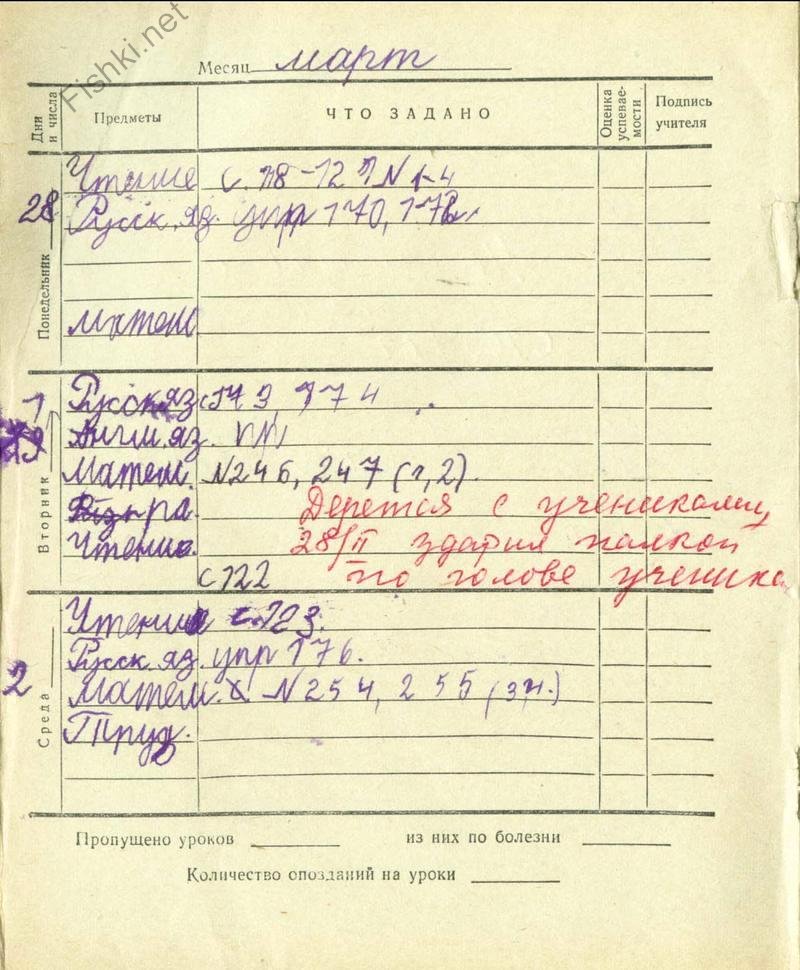 Fishki.net
Месяц март
Дни и числа Предметы ЧТО ЗАДАНО Оценка успевае-мости Подпись учителя
28 Понедельник
Чтение с. 118-121 N 1-4
Русск. яз. упр 170, 172
матем
1 Вторник
Русск яз 173, 174
Англ. яз.
Матем. N246, 247 (1,2).
Дерется с учениками,
Чтение. 28/II здарил палкой
с 122 по голове ученика
2 Среда
Чтение с. 123.
Русск. яз. упр 176.
Матем. N254, 255 (з н.)
Труд.
Пропущено уроков из них по болезни
Количество опозданий на уроки